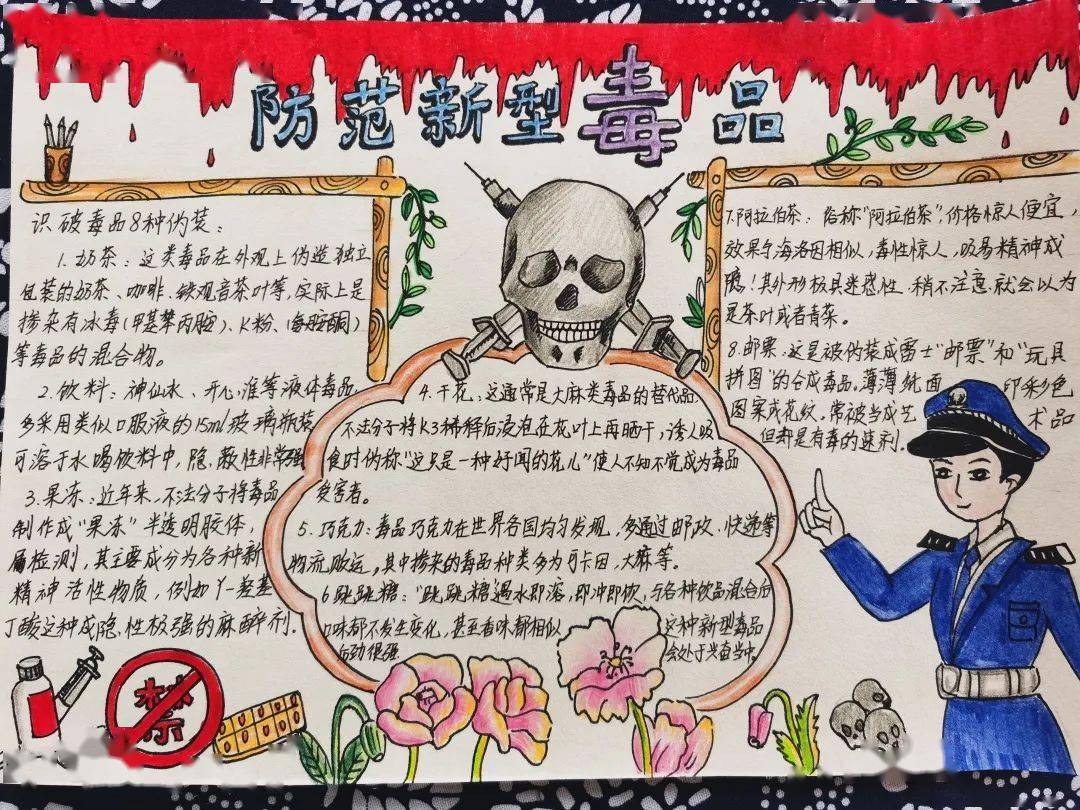 防范新型毒品
识破毒品8种伪装：
1.奶茶：这类毒品在外观上伪造独立
包装的奶茶、咖啡、铁观音茶叶等,实际上是
掺杂有冰毒(甲基苯丙胺)、K粉、(氯胺酮)
等毒品的混合物。
2.饮料：神仙水、开心准等液体毒品
多采用类似口服液的15ml玻璃瓶装
可溶于水喝饮料中,隐蔽性非常强
3.果冻：近年来,不法分子将毒品
制作成“果冻”半透明胶体,
属检测,其主要成分为各种新
精神活性物质,例如γ-羟基
丁酸这种成隐性极强的麻醉剂.
4.干花,这通常是大麻类毒品的替代品,
不法分子将K3稀释后浸泡在花叶上再晒干,诱人吸
食时伪称“这只是一种好闻的花儿”使人不知不觉成为毒品
受害者。
5.巧克力:毒品巧克力在世界各国均匀发现,多通过邮政、快递等
物流贩运,其中掺杂的毒品种类多为可卡因,大麻等。
6跳跳糖：“跳跳糖遇水即溶,即冲即饮,与各种饮品混合后
口味都不发生变化,甚至香味都相似 这种新型毒品
后劲很强 会处于兴奋当中.
7.阿拉伯茶：俗称“阿拉伯茶”,价格惊人便宜,
效果与海洛因相似,毒性惊人,吸易精神成
瘾!其外形极具迷惑性.稍不注意就会以为
是茶叶或者青菜。
8.邮票:这是被伪装成富士“邮票”和“玩具
拼图”的合成毒品,薄薄纸面 印彩色
图案或花纹。常被当成艺 术品
但却是有毒的迷剂.
禁